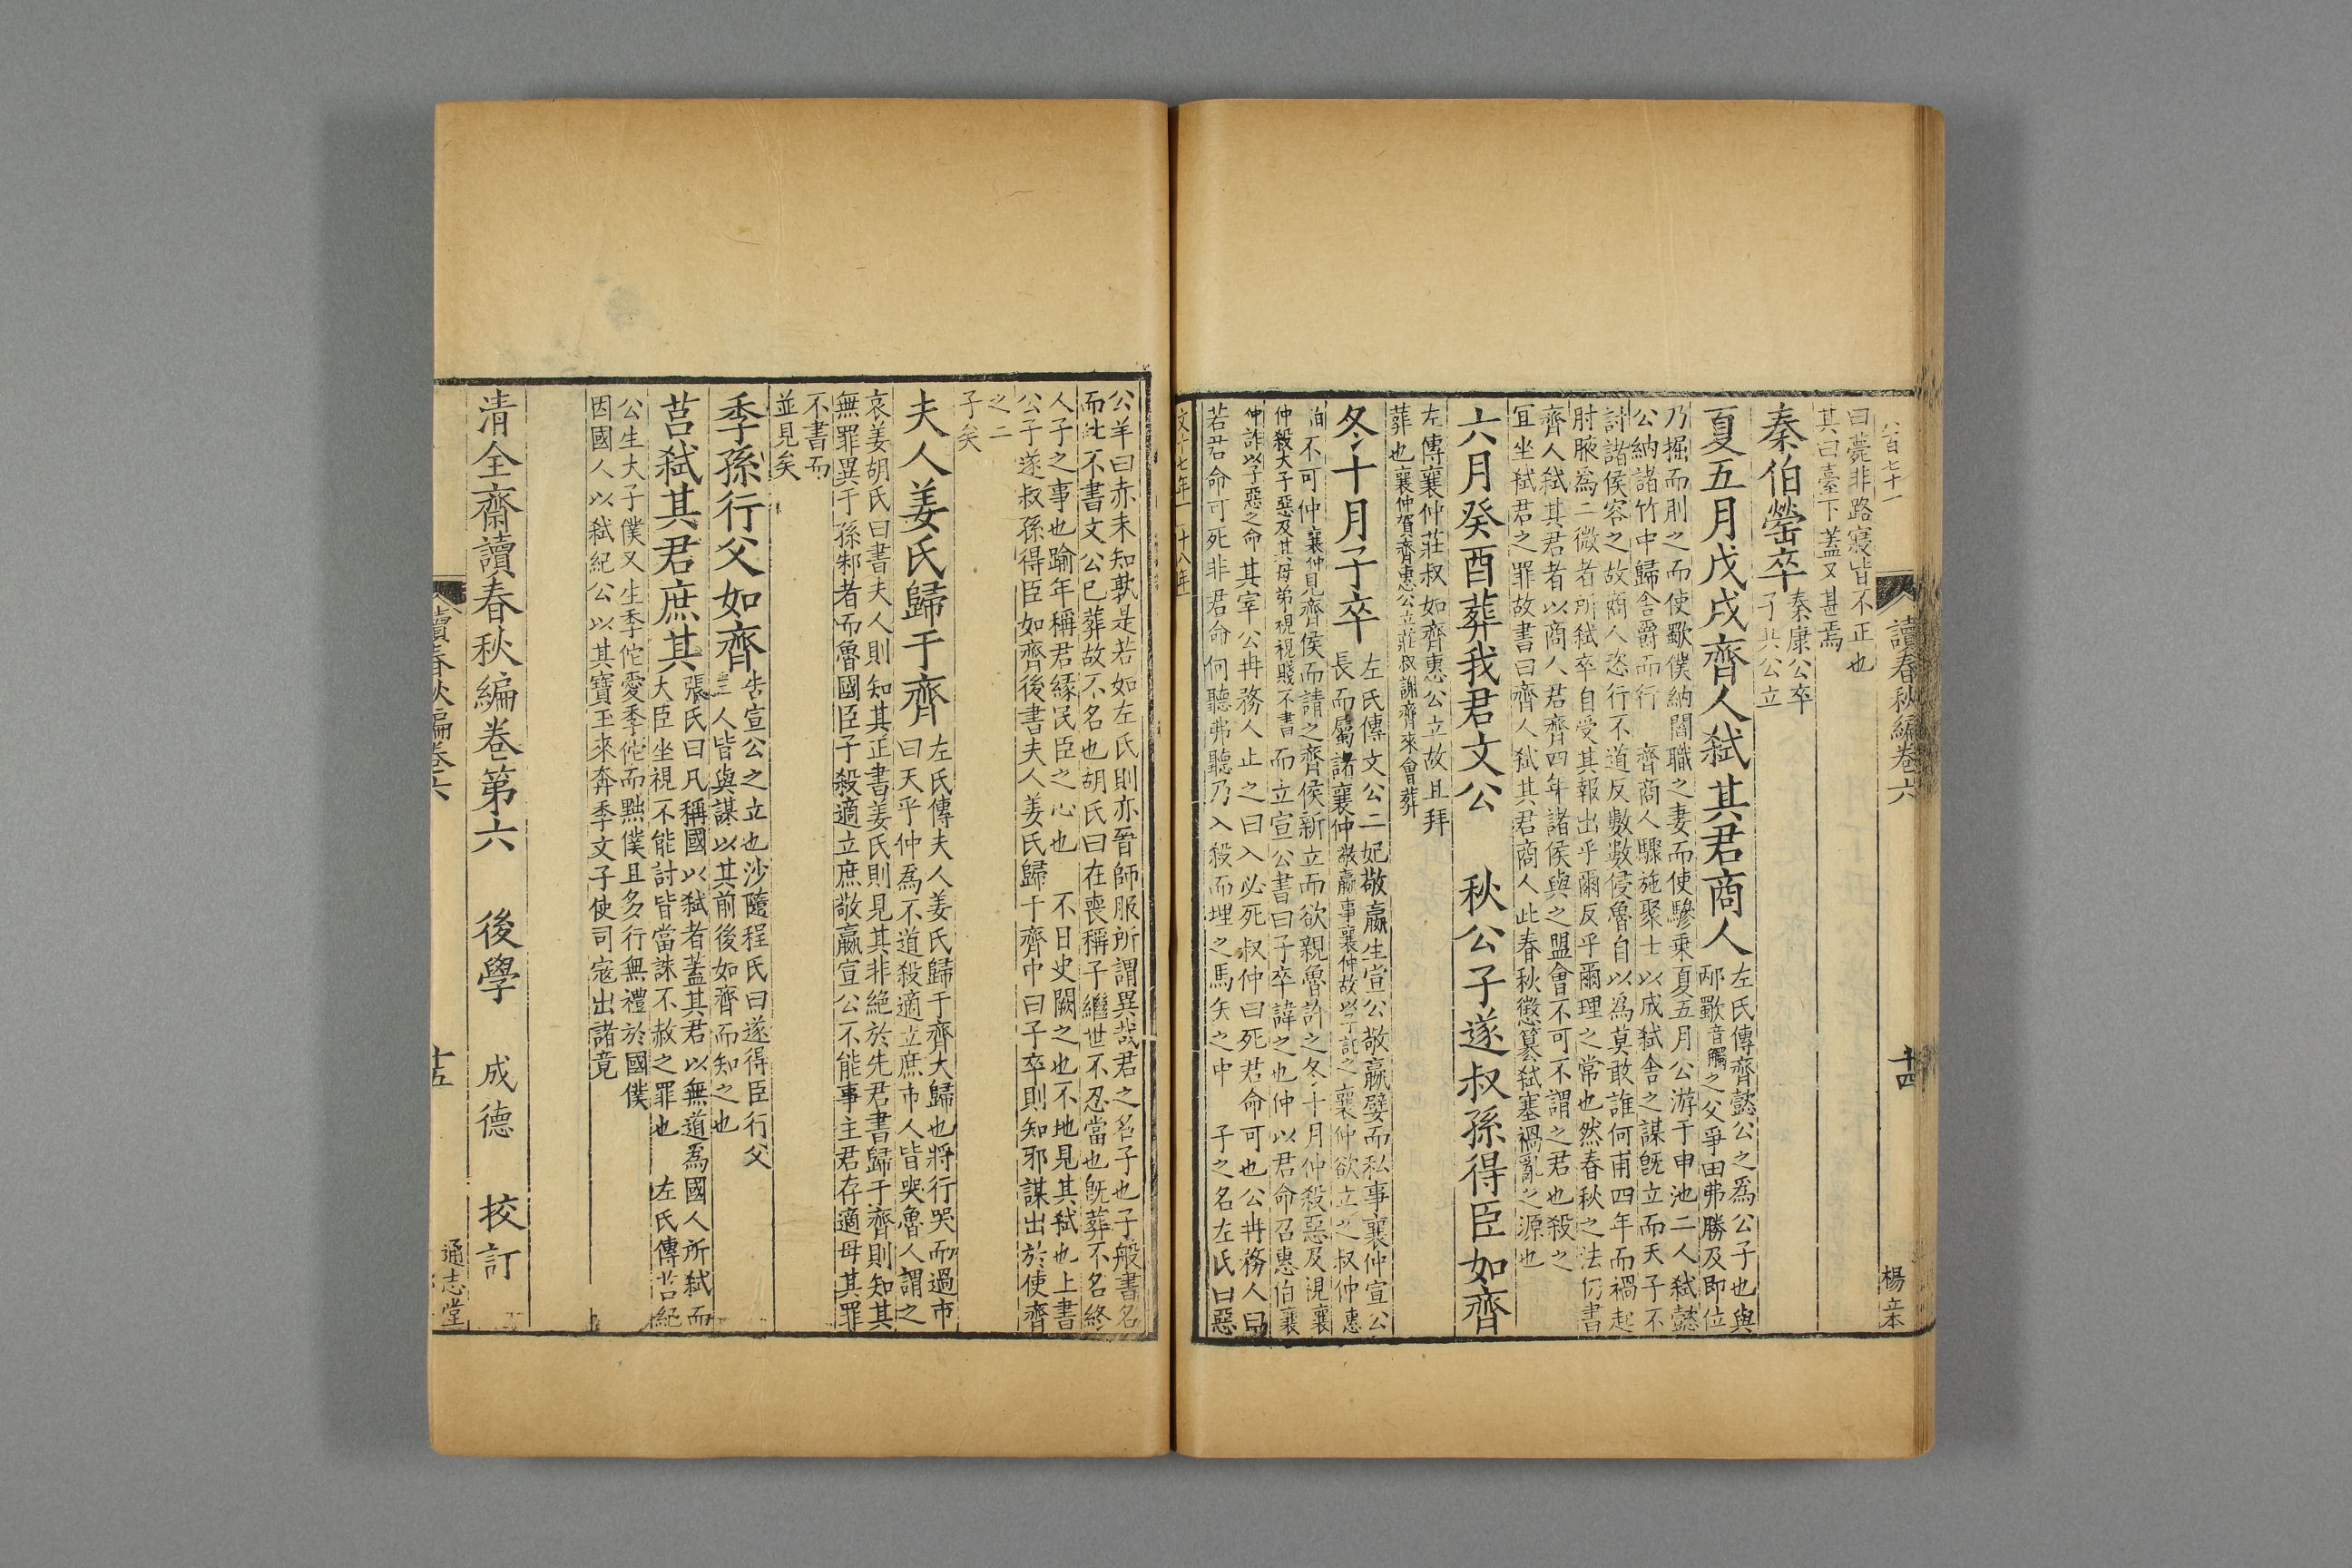 八百七十一
讀春秋編卷六
十四
楊立本
曰薨非路寢皆不正也
其曰臺下蓋又甚焉
秦伯罃卒
秦康公卒
子共公立
夏五月戊戌齊人弑其君商人
左氏傳齊懿公之為公子也與
邴歜音觸之父爭田弗勝及即位
乃掘而刖之而使歜僕納閻職之妻而使驂乗夏五月公游于申池二人弑懿
公納諸竹中歸舍爵而行 齊商人驟施聚士以成弑舍之謀旣立而天子不
討諸侯容之故商人恣行不道反數數侵魯自以為莫敢誰何甫四年而禍起
肘腋為二微者所弑卒自受其報出乎爾反乎爾理之常也然春秋之法仍書
齊人弑其君者以商人君齊四年諸侯與之盟會不可不謂之君也殺之
冝坐弑君之罪故書曰齊人弑其君商人此春秋懲篡弑塞禍亂之源也
六月癸酉葬我君文公 秋公子遂叔孫得臣如齊
左傳襄仲莊叔如齊惠公立故且拜
葬也襄仲賀齊惠公立莊叔謝齊來會葬
冬十月子卒
左氏傳文公二妃敬嬴生宣公敬嬴嬖而私事襄仲宣公
長而屬諸襄仲敬嬴事襄仲故以子託之襄仲欲立之叔仲惠
伯不可仲襄仲見齊侯而請之齊侯新立而欲親魯許之冬十月仲殺惡及視襄
仲殺大子惡及其母弟視視賤不書而立宣公書曰子卒諱之也仲以君命召惠伯襄
仲詐以子惡之命其宰公冉務人止之曰入必死叔仲曰死君命可也公冉務人曰
若君命可死非君命何聽弗聽乃入殺而埋之馬矢之中 子之名左氏曰惡
文十七年 十八年
公羊曰赤未知孰是若如左氏則亦晉師服所謂異哉君之名子也子般書名
而此不書文公已葬故不名也胡氏曰在喪稱子繼世不忍當也旣葬不名終
人子之事也踰年稱君緣民臣之心也 不日史闕之也不地見其弑也上書
公子遂叔孫得臣如齊後書夫人姜氏歸于齊中曰子卒則知邪謀出於使齊
之二
子矣
夫人姜氏歸于齊
左氏傳夫人姜氏歸于齊大歸也將行哭而過市
曰天乎仲為不道殺適立庶市人皆哭魯人謂之
哀姜胡氏曰書夫人則知其正書姜氏則見其非絕於先君書歸于齊則知其
無罪異于孫邾者而魯國臣子殺適立庶敬嬴宣公不能事主君存適母其罪
不書而
並見矣
季孫行父如齊
告宣公之立也沙隨程氏曰遂得臣行父
三人皆與謀以其前後如齊而知之也
莒弑其君庶其
張氏曰凡稱國以弑者蓋其君以無道為國人所弑而
大臣坐視不能討皆當誅不赦之罪也 左氏傳莒紀
公生大子僕又生季佗愛季佗而黜僕且多行無禮於國僕
因國人以弑紀公以其寶玉來奔季文子使司寇出諸竟
清全齋讀春秋編卷第六 後學 成德 校訂
讀春秋編卷六
十五
通志堂